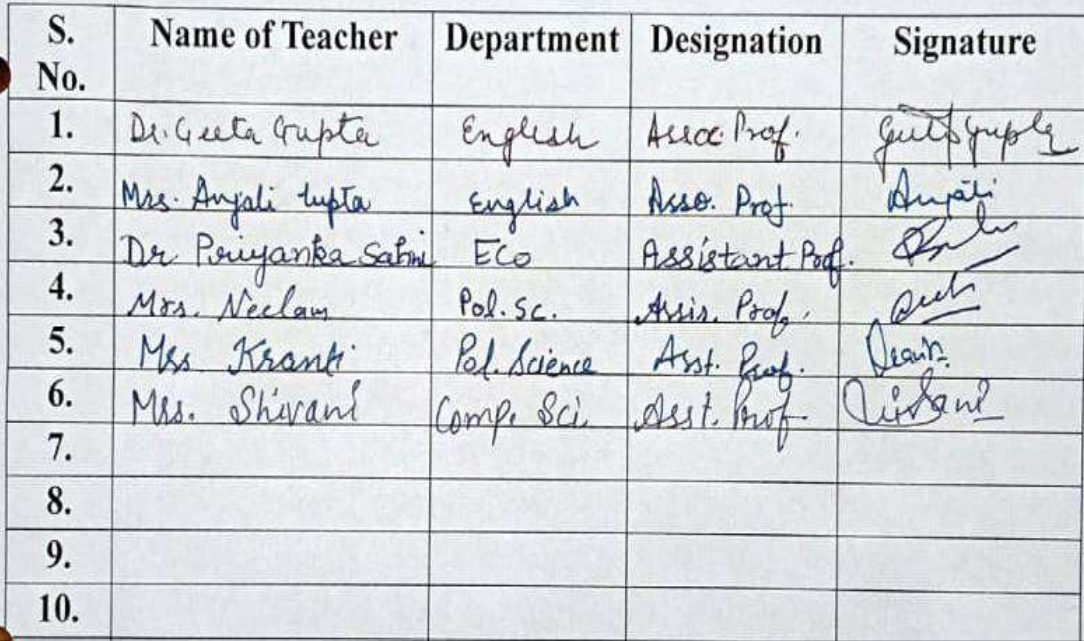 S. No. Name of Teacher Department Designation Signature
1. Dr. Geeta Gupta English Assoc. Prof. Geeta Gupta
2. Mrs. Anjali Gupta English Asso. Prof. Anjali
3. Dr Priyanka Sahni Eco Assistant Prof.
4. Mrs. Neelam Pol. Sc. Assis. Prof.
5. Mrs. Kranti Pol. Science Asst. Prof.
6. Mrs. Shivani Comp. Sci. Asst. Prof Shivani
7.
8.
9.
10.